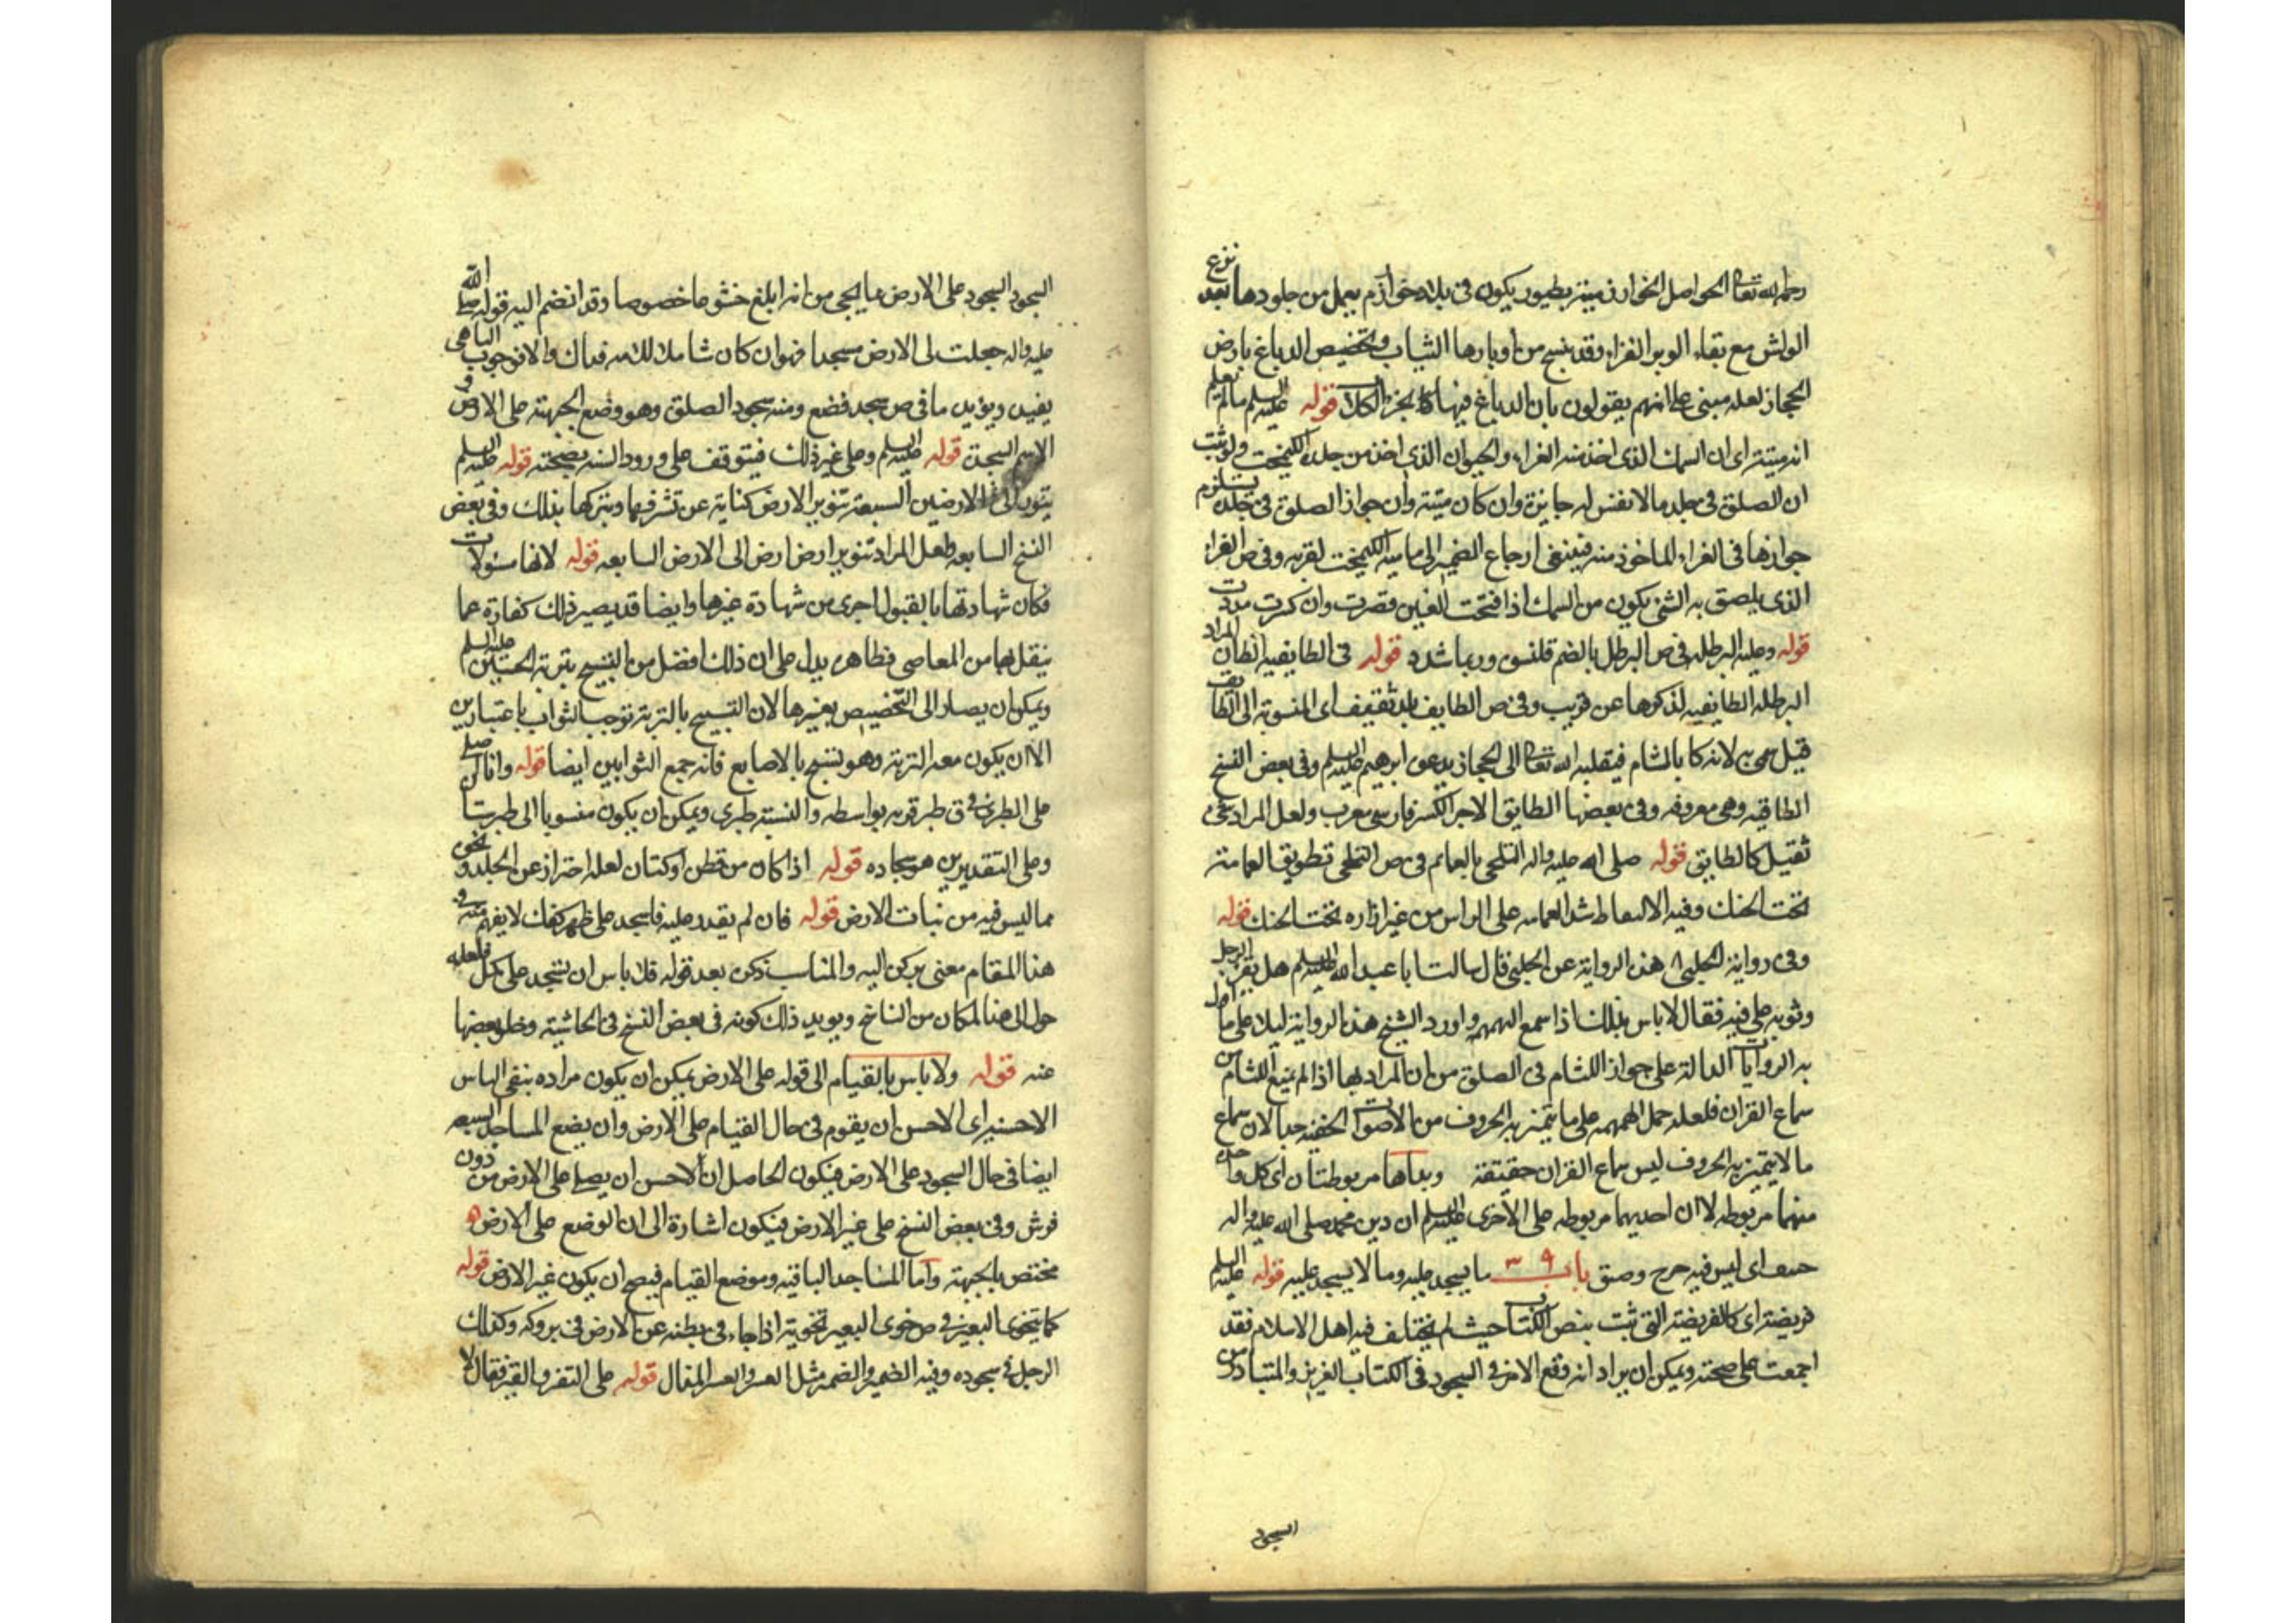 رحمه الله تعالى الحواصل الخوارزمية بطيور يكون في بلاد خوارزم يعمل من جلودها بعد نزع
الواش مع بقاء الوبر الفراء وقد ينسج من اوبارها الثياب وتخصيص الدباغ بارض
الحجاز لعله مبنى على انهم يقولون بان الدباغ فيها قوله عليه السلم مالم تعلم
انه ميتة اى ان السمك الذى اخذ منه الغراء والحيوان الذى اخذ من جلده الكيمخت ولو ثبت
ان الصلوة في جلد مالا نفس له جايزة وان كان ميتة وان جواز الصلوة في جلده يستلزم
جوازها في الغراء الماخوذ منه فينبغى ارجاع الضمير الى ما الكيمخت لقربه وفى ص الغراء
الذى يلصق به الشئ يكون من السمك اذا فتحت الغين قصرت وان كسرت مددت
قوله وعليه البرطله في ص البرطل بالضم قلنسوة وربما شدد قوله في الطايفيه المراد
البرطله الطايفيه لذكرها عن قريب وفى ص الطايف بلد ثقيف اى المنسوبة الى الطايف
قيل سمى به لانه كا بالشام فنقله الله تعالى الى الحجاز بدعوة ابرهيم عليه السلم وفى بعض النسخ
الطاقيه وهى معروفه وفى بعضها الطابق الاجر الكبير فارسى معرب ولعل المراد شئ
ثقيل كالطابق قوله صلى الله عليه واله التلحى بالعمايم في ص التلحى تطويق العمامة
تحت الحنك وفيه الاقتعاط شد العمامه على الراس من غير اداره تحت الحنك قوله
وفى رواية الحلبى هذه الرواية عن الحلبى قال سالت ابا عبد الله عليه السلم هل يقرا الرجل
وثوبه على فيه فقال لا باس بذلك اذا سمع الهمهمه واورد الشيخ هذه الرواية دليلا على ما
به الروايات الدالة على جواز اللثام في الصلوة من ان المراد بها اذا لم يمنع اللثام من
سماع القران فلعله حمل الهمهمه على ما يتميز به الحروف من الاصوات الخفية جدا لان سماع
ما لا يتميز به الحروف ليس سماع القران حقيقة ويداها مربوطتان اى كل واحده
منهما مربوطه لا ان احديهما مربوطه على الاخرى عليه السلم ان دين محمد صلى الله عليه واله
حنيف اى ليس فيه حرج وضيق باب ٣٩ ما يسجد عليه وما لا يسجد عليه قوله عليه السلم
فريضة اى كالفريضة التى ثبت بنص الكتاب حيث لم يختلف فيه اهل الاسلام فقد
اجمعت على صحته ويمكن ان يراد انه وقع الامر في السجود في الكتاب العزيز والمتبادر من
السجود
السجود السجود على الارض ما يجئ من انه ابلغ خشوعا خصوصا وقد انضم اليه قوله صلى الله
عليه واله جعلت لى الارض مسجدا فهو ان كان شاملا للامة فذاك والا فوجوب التاسى
يفيده ويؤيده ما في ص سجد خضع ومنه سجود الصلوة وهو وضع الجبهة على الارض و
الاسم السجدة قوله عليه السلم وعلى غير ذلك فيتوقف على ورود السنه بصحته قوله عليه السلم
ينور الى الارضين السبعة تنوير الارض كناية عن تشرفها وتبركها بذلك وفى بعض
النسخ السابعه ولعل المراد تنوير ارض ارض الى الارض السابعه قوله لانها مسئولات
فكان شهادتها بالقبول احرى من شهادة غيرها وايضا قد يصير ذلك كفارة عما
ينقل بها من المعاصى فظاهره يدل على ان ذلك افضل من التسبيح بتربة الحسين عليه السلم
ويمكن ان يصار الى التخصيص بغيرها لان التسبيح بالتربة توجب الثواب باعتبارين
الا ان يكون معه التربة وهو تسبيح بالاصابع فانه جمع الثوابين ايضا قوله وانا اصلى
على الطبرى في ق طبر قريه بواسطه والنسبة طبرى ويمكن ان يكون منسوبا الى طبرستان
وعلى التقديرين هو سجاده قوله اذا كان من قطن او كتان لعله احتراز عن الجلد ونحوه
مما ليس فيه من نبات الارض قوله فان لم يقدر عليه فاسجد على ظهر كفك لا يفهم منه في
هذا المقام معنى يركن اليه والمناسب ذكره بعد قوله فلا باس ان تسجد على كمك فلعله
حول الى هذا المكان من الناسخ ويويد ذلك كونه في بعض النسخ في الحاشية وخلو بعضها
عنه قوله ولا باس بالقيام الى قوله على الارض يمكن ان يكون مراده بنفى الباس
الاحسنيه اى الاحسن ان يقوم في حال القيام على الارض وان يضع المساجد السبعه
ايضا في حال السجود على الارض فيكون الحاصل ان الاحسن ان يصلى على الارض من دون
فرش وفى بعض النسخ على غير الارض فيكون اشارة الى ان الوضع على الارض
مختص بالجبهة واما المساجد الباقيه وموضع القيام فيصح ان يكون غير الارض قوله
كما يتخوى البعير في ص خوى البعير تخوية اذا جاء في بطنه عن الارض في بروكه وكذلك
الرجل في سجوده وفيه الضمير والضمر مثل العسر والعسر الهزال قوله على القفر والقير فقال لا